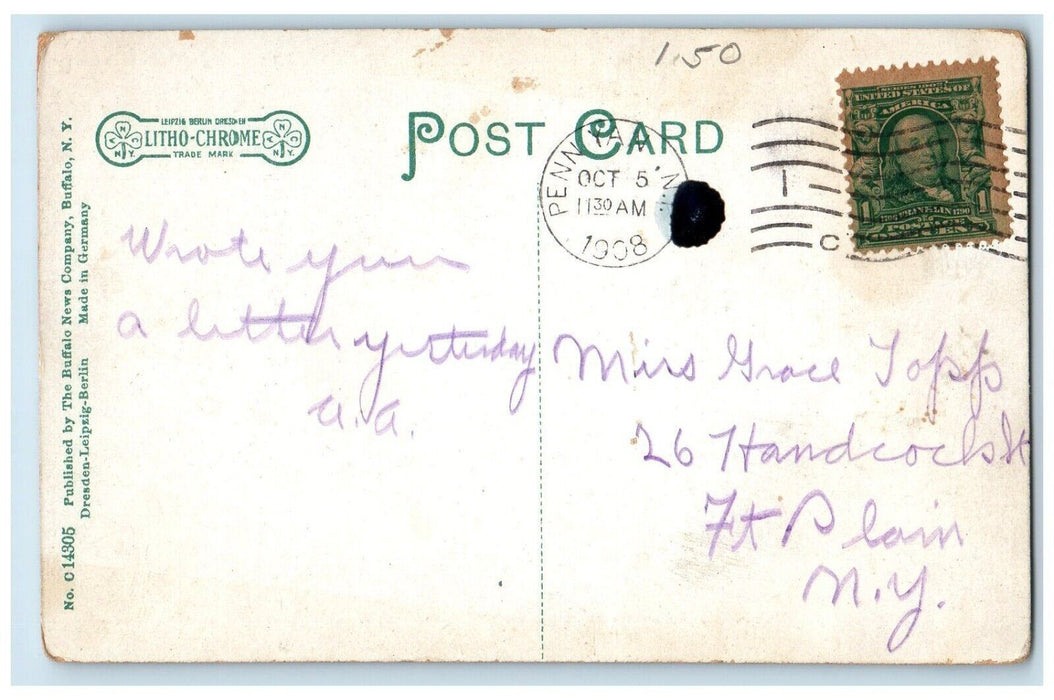 1.50
LEIPZIG BERLIN DRESDEN
LITHO-CHROME
TRADE MARK
POST CARD
PENN YAN, N
OCT 5
11 30 AM
1908
1
C
SERIES 1902
UNITED STATES OF
AMERICA
1706 FRANKLIN 1790
1 1
POSTAGE
ONE CENT
Wrote you
a letter yesterday
a.a.
Miss Grace Topp
26 Handcock St
Ft Plain
N.Y.
No. C 14305 Published by The Buffalo News Company, Buffalo, N. Y.
Dresden-Leipzig-Berlin Made in Germany